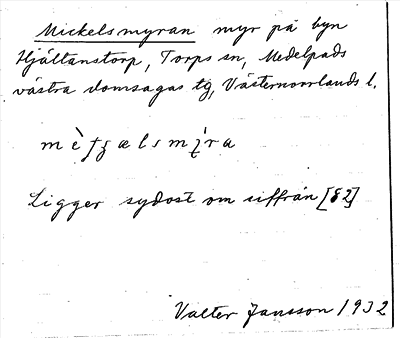 Mickelsmyran myr på byn
Hjältanstorp, Torps sn, Medelpads
västra domsagas tg, Västernorrlands l.
Ligger sydost om siffran [82]
Valter Jansson 1932